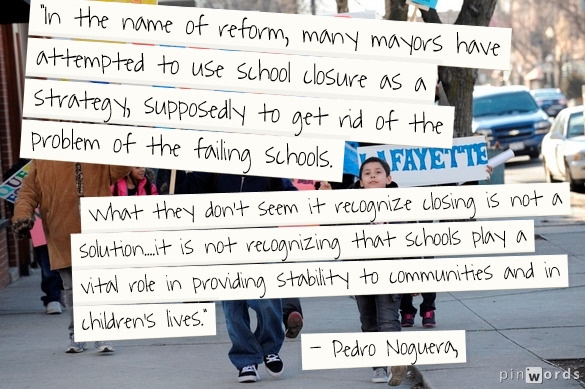 "In the name of reform, many mayors have
attempted to use school closure as a
strategy, supposedly to get rid of the
problem of the failing schools.
LAFAYETTE
What they don't seem it recognize closing is not a
solution....it is not recognizing that schools play a
vital role in providing stability to communities and in
children's lives."
- Pedro Noguera,
pinwords